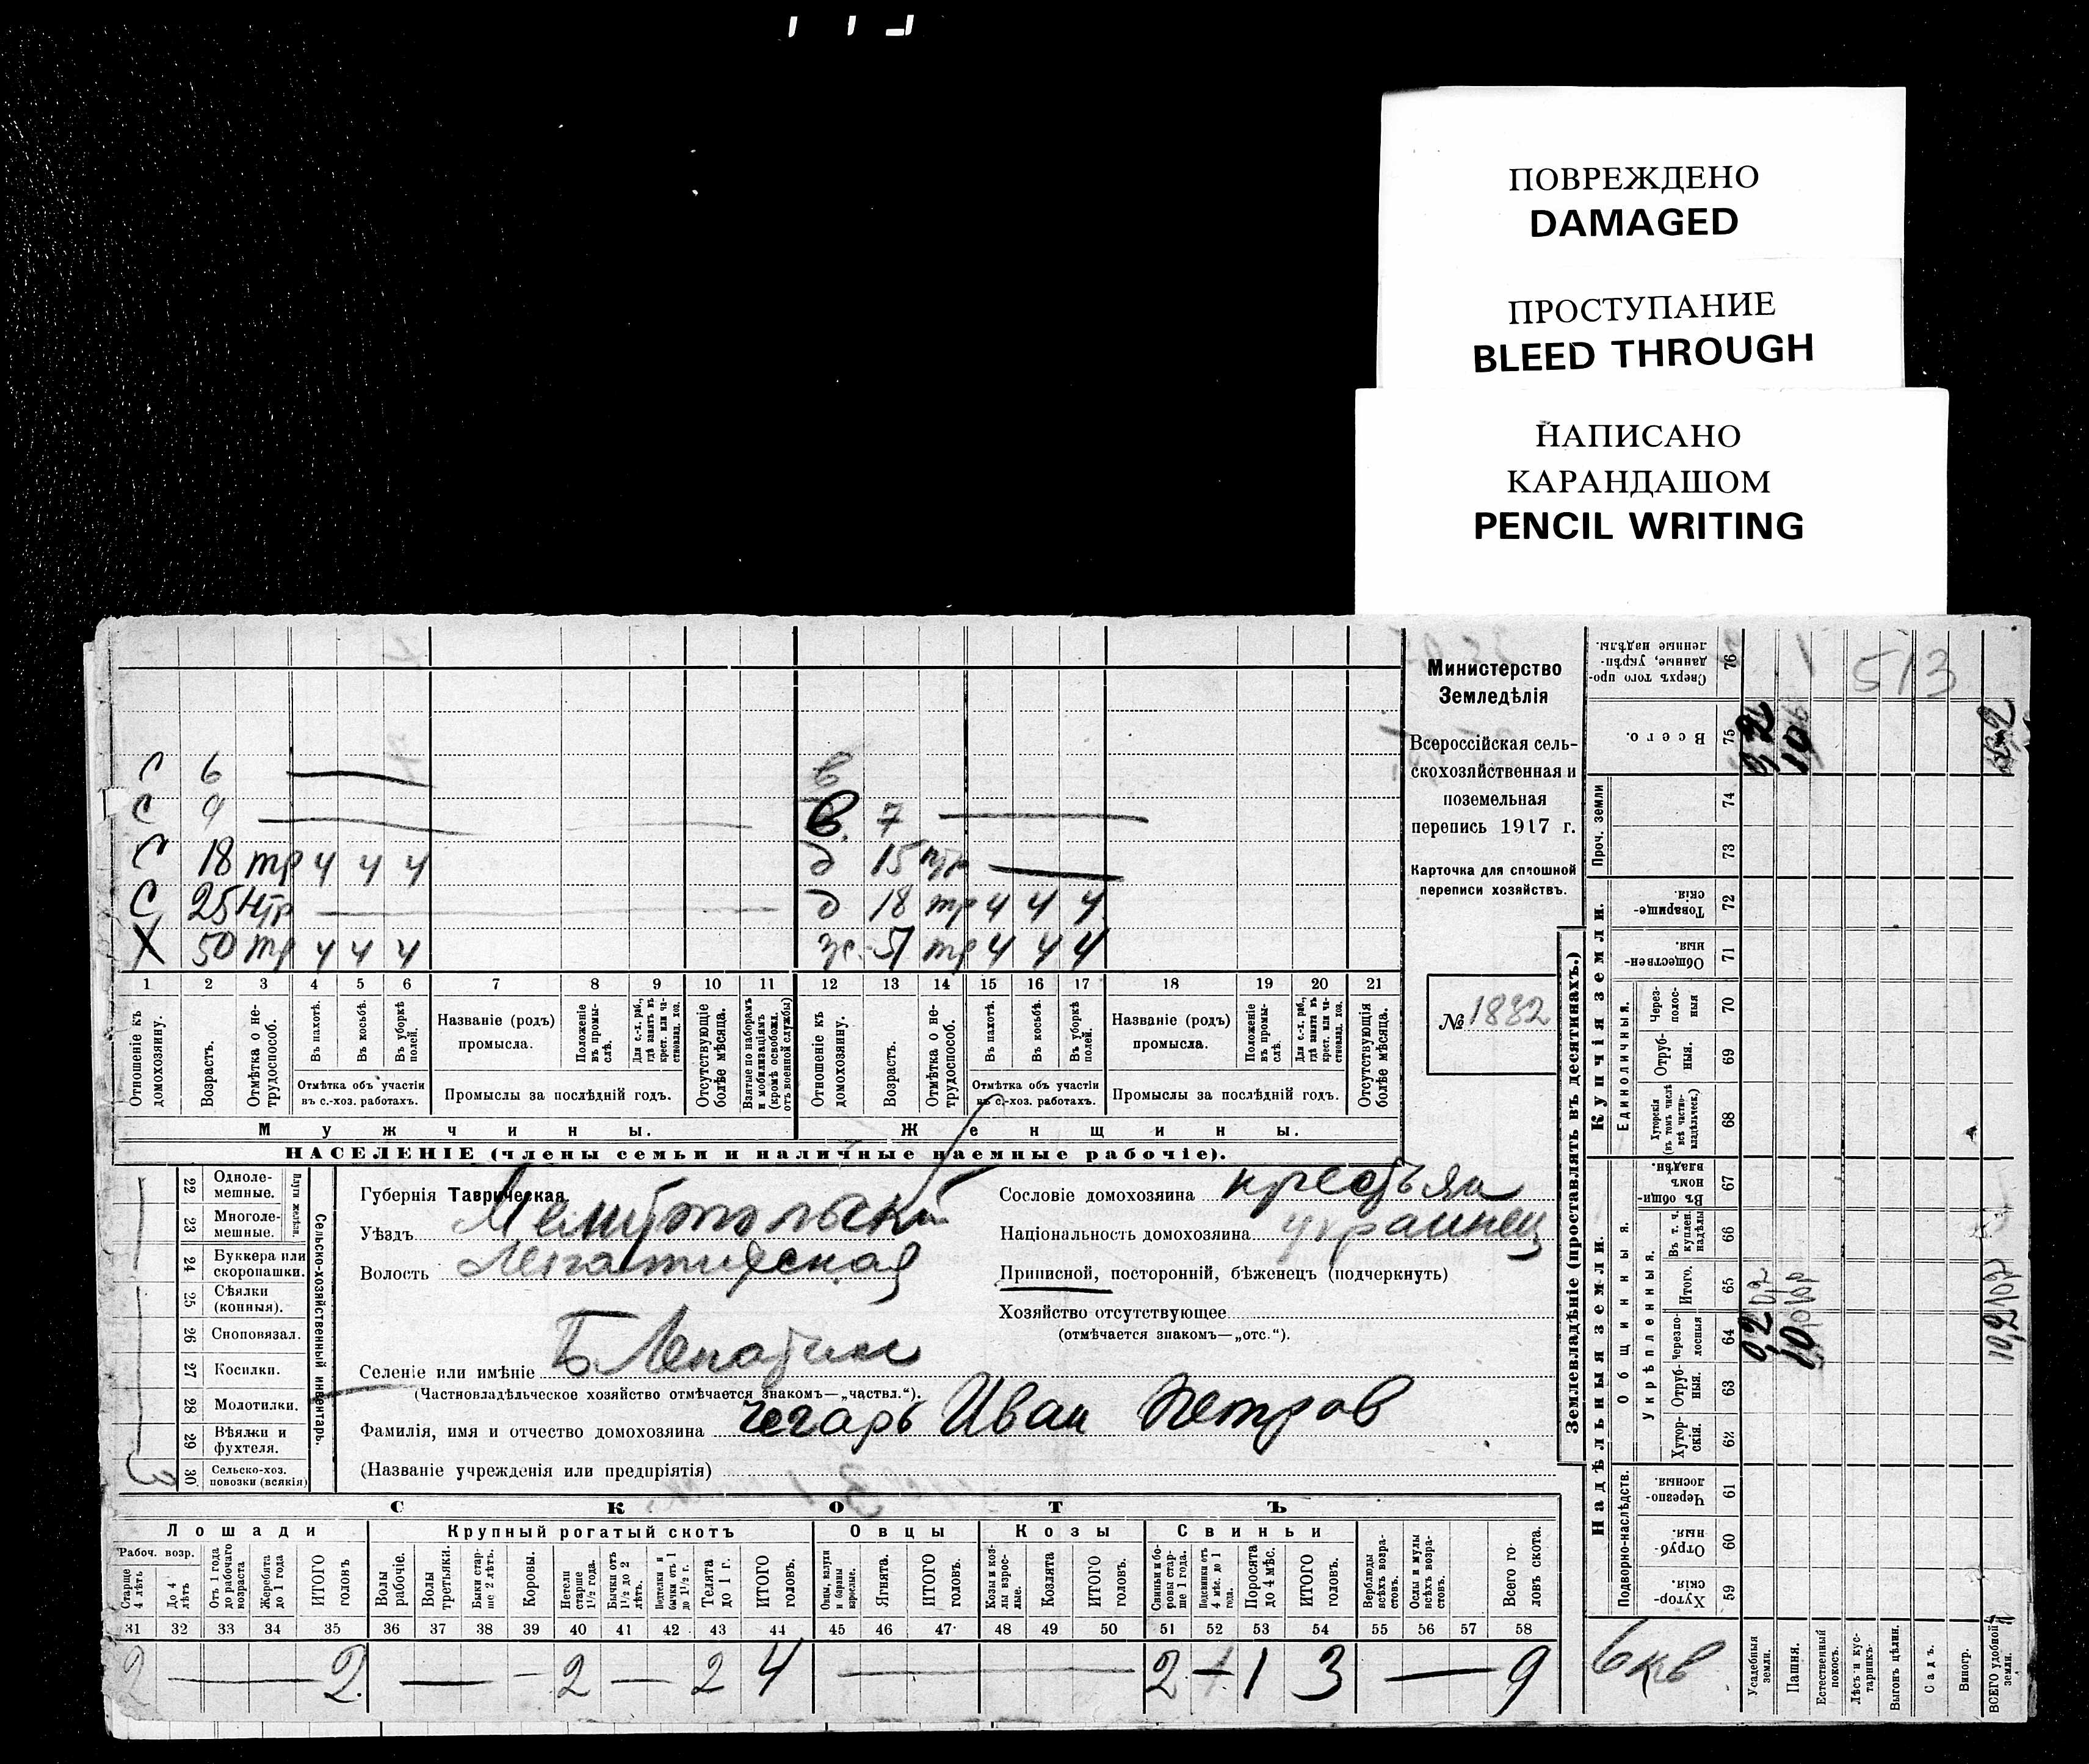 ПОВРЕЖДЕНО
DAMAGED
ПРОСТУПАНИЕ
BLEED THROUGH
НАПИСАНО
КАРАНДАШОМ
PENCIL WRITING
Министерство
Земледѣлія
Всероссійская сель-
скохозяйственная и
поземельная
перепись 1917 г.
Карточка для сплошной
переписи хозяйствъ.
№ 1882
С 6
С 9 в. 7
С 18 тр 4 4 4 д 15 нтр
С 25 нтр д 18 тр 4 4 4
Х 50 тр 4 4 4 ж. 51 тр 4 4 4
1 2 3 4 5 6 7 8 9 10 11 12 13 14 15 16 17 18 19 20 21
Отношеніе къ домохозяину.
Возрастъ.
Отмѣтка о не-трудоспособ.
Въ пахотѣ.
Въ косьбѣ.
Въ уборкѣ полей.
Отмѣтка объ участіи
въ с.-хоз. работахъ.
Названіе (родъ)
промысла.
Положеніе въ промы-слѣ.
Для с.-х. раб., гдѣ занятъ въ крест. или ча-стновлад. хоз.
Промыслы за послѣдній годъ.
Отсутствующіе болѣе мѣсяца.
Взятые по наборамъ и мобилизаціямъ (кромѣ освобожд. отъ военной службы)
Отношеніе къ домохозяину.
Возрастъ.
Отмѣтка о не-трудоспособ.
Въ пахотѣ.
Въ косьбѣ.
Въ уборкѣ полей.
Отмѣтка объ участіи
въ с.-хоз. работахъ.
Названіе (родъ)
промысла.
Положеніе въ промы-слѣ.
Для с.-х. раб., гдѣ занята въ крест. или ча-стновлад. хоз.
Промыслы за послѣдній годъ.
Отсутствующія болѣе мѣсяца.
Мужчины. Женщины.
НАСЕЛЕНІЕ (члены семьи и наличные наемные рабочіе).
22 Одноле-мешные.
23 Многоле-мешные.
Плуги желѣз.
24 Буккера или скоропашки.
25 Сѣялки (конныя).
26 Сноповязал.
27 Косилки.
28 Молотилки.
29 Вѣялки и фухтеля.
30 Сельско-хоз. повозки (всякія) 3
Сельско-хозяйственный инвентарь.
Губернія Таврическая.
Уѣздъ Мелитопольский
Волость
Селеніе или имѣніе
(Частновладѣльческое хозяйство отмѣчается знакомъ—„частвл.“).
Фамилія, имя и отчество домохозяина Чегарь Иван Петров
(Названіе учрежденія или предпріятія)
Сословіе домохозяина крестьян
Національность домохозяина украинец
Приписной, посторонній, бѣженецъ (подчеркнуть)
Хозяйство отсутствующее
(отмѣчается знакомъ—„отс.“).
СКОТЪ
Лошади Крупный рогатый скотъ Овцы Козы Свиньи
Рабоч. возр.
Старше 4 лѣтъ
До 4 лѣтъ
Отъ 1 года до рабочаго возраста
Жеребята до 1 года
ИТОГО головъ
Волы рабочіе.
Волы третьяки.
Быки стар-ше 2 лѣтъ.
Коровы.
Нетели старше 1½ года.
Бычки отъ 1½ до 2 лѣтъ.
Подтелки и бычки отъ 1 до 1½ г.
Телята до 1 г.
ИТОГО головъ.
Овцы, валухи и бараны взрослые.
Ягнята.
ИТОГО головъ.
Козы и коз-лы взрос-лые.
Козлята
ИТОГО головъ.
Свиньи и бо-ровы стар-ше 1 года.
Подсвинки отъ 4 мѣс. до 1 года.
Поросята до 4 мѣс.
ИТОГО головъ.
Верблюды всѣхъ возра-стовъ.
Ослы и мулы всѣхъ возра-стовъ.
Всего го-ловъ скота.
31 32 33 34 35 36 37 38 39 40 41 42 43 44 45 46 47 48 49 50 51 52 53 54 55 56 57 58
2 2 2 2 4 2 1 3 9
Землевладѣніе (проставлять въ десятинахъ.)
Надѣльныя земли. Купчія земли.
Подворно-наслѣдств.
Общинныя.
Укрѣпленныя.
Единоличныя.
Проч. земли
59 Хутор-скія.
60 Отруб-ныя.
61 Черезпо-лосныя.
62 Хутор-скія.
63 Отруб-ныя.
64 Черезпо-лосныя
65 Итого.
66 Въ т. ч. куплен. надѣлы
67 Въ общин-номъ владѣн.
68 Хуторскія (въ томъ числѣ всѣ частно-владѣльческ.)
69 Отруб-ныя.
70 Через-полос-ныя
71 Обществен-ныя.
72 Товарище-скія.
73
74
75 Всего.
76 Сверхъ того про-данные, укрѣп-ленные надѣлы.
513
0,2
10
Усадебныя земли.
Пашня.
Естественный покосъ.
Лѣсъ и кус-тарникъ.
Выгонъ цѣлин.
Садъ.
Виногр.
ВСЕГО удобной земли.